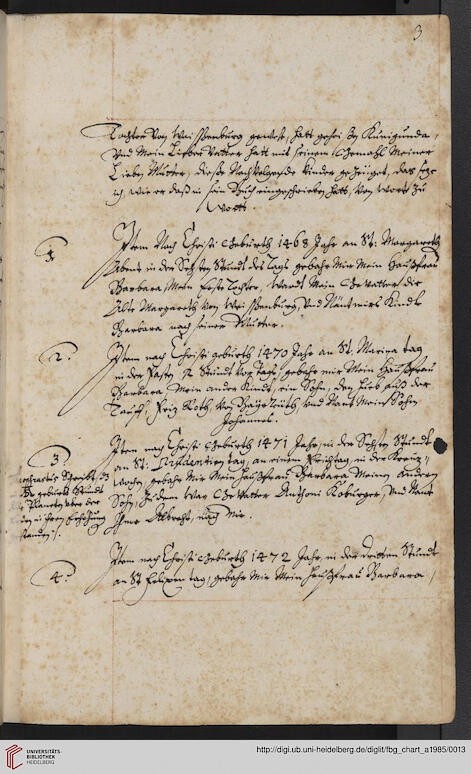 3
Tochter von Weissenburg gewest, hatt geheissen Kunigunda,
Und Mein Lieber Vatter hatt mit seinem Gemahl Meiner
Lieben Mutter, diesse Nachvolgende kinder gezeiget, das setze
ich, wie er dass in sein Buch eingeschrieben hatt, von wort zu
wortt.
1.
Item Nach Christi Geburth 1468 Jahr an St: Margareth
Abent in der Sechsten Stundt des Tags gebahr Mir Mein Haussfrau
Barbara, Mein Erste Tochter, Wardt Mein Gevatter die
Alte Margareth von Weissenburg, Und Nant mirs Kindt
Barbara nach seiner Mutter.
2.
Item nach Christi geburth 1470 Jahr an St. Marina tag
in der Stundt vor Tags, gebahr mir Mein Haussfrau
Barbara, Mein ander Kindt, ein Sohn, den hieb auss der
Tauff, Friz Roth, von Bayrreüth, und Nant Mein Sohn
Johannes.
3.
Item nach Christi Geburth 1471 Jahr, in der Sechsten Stundt
an St. Prudentien tag, an einem Erichtag, in der Creuz-
wochen, gebahr Mir Mein Haussfrau Barbara Meinen Andern
Sohn, zudem war Gevatter Anthoni Koburger, Und Nant
Ihme Albrecht, nach Mir.
4.
Item nach Christi Geburth 1472 Jahr in der dritten Stundt
an St Felixen tag, gebahr Mir Mein Haussfrau Barbara,
UNIVERSITÄTS-
BIBLIOTHEK
HEIDELBERG
http://digi.ub.uni-heidelberg.de/diglit/fbg_chart_a1985/0013